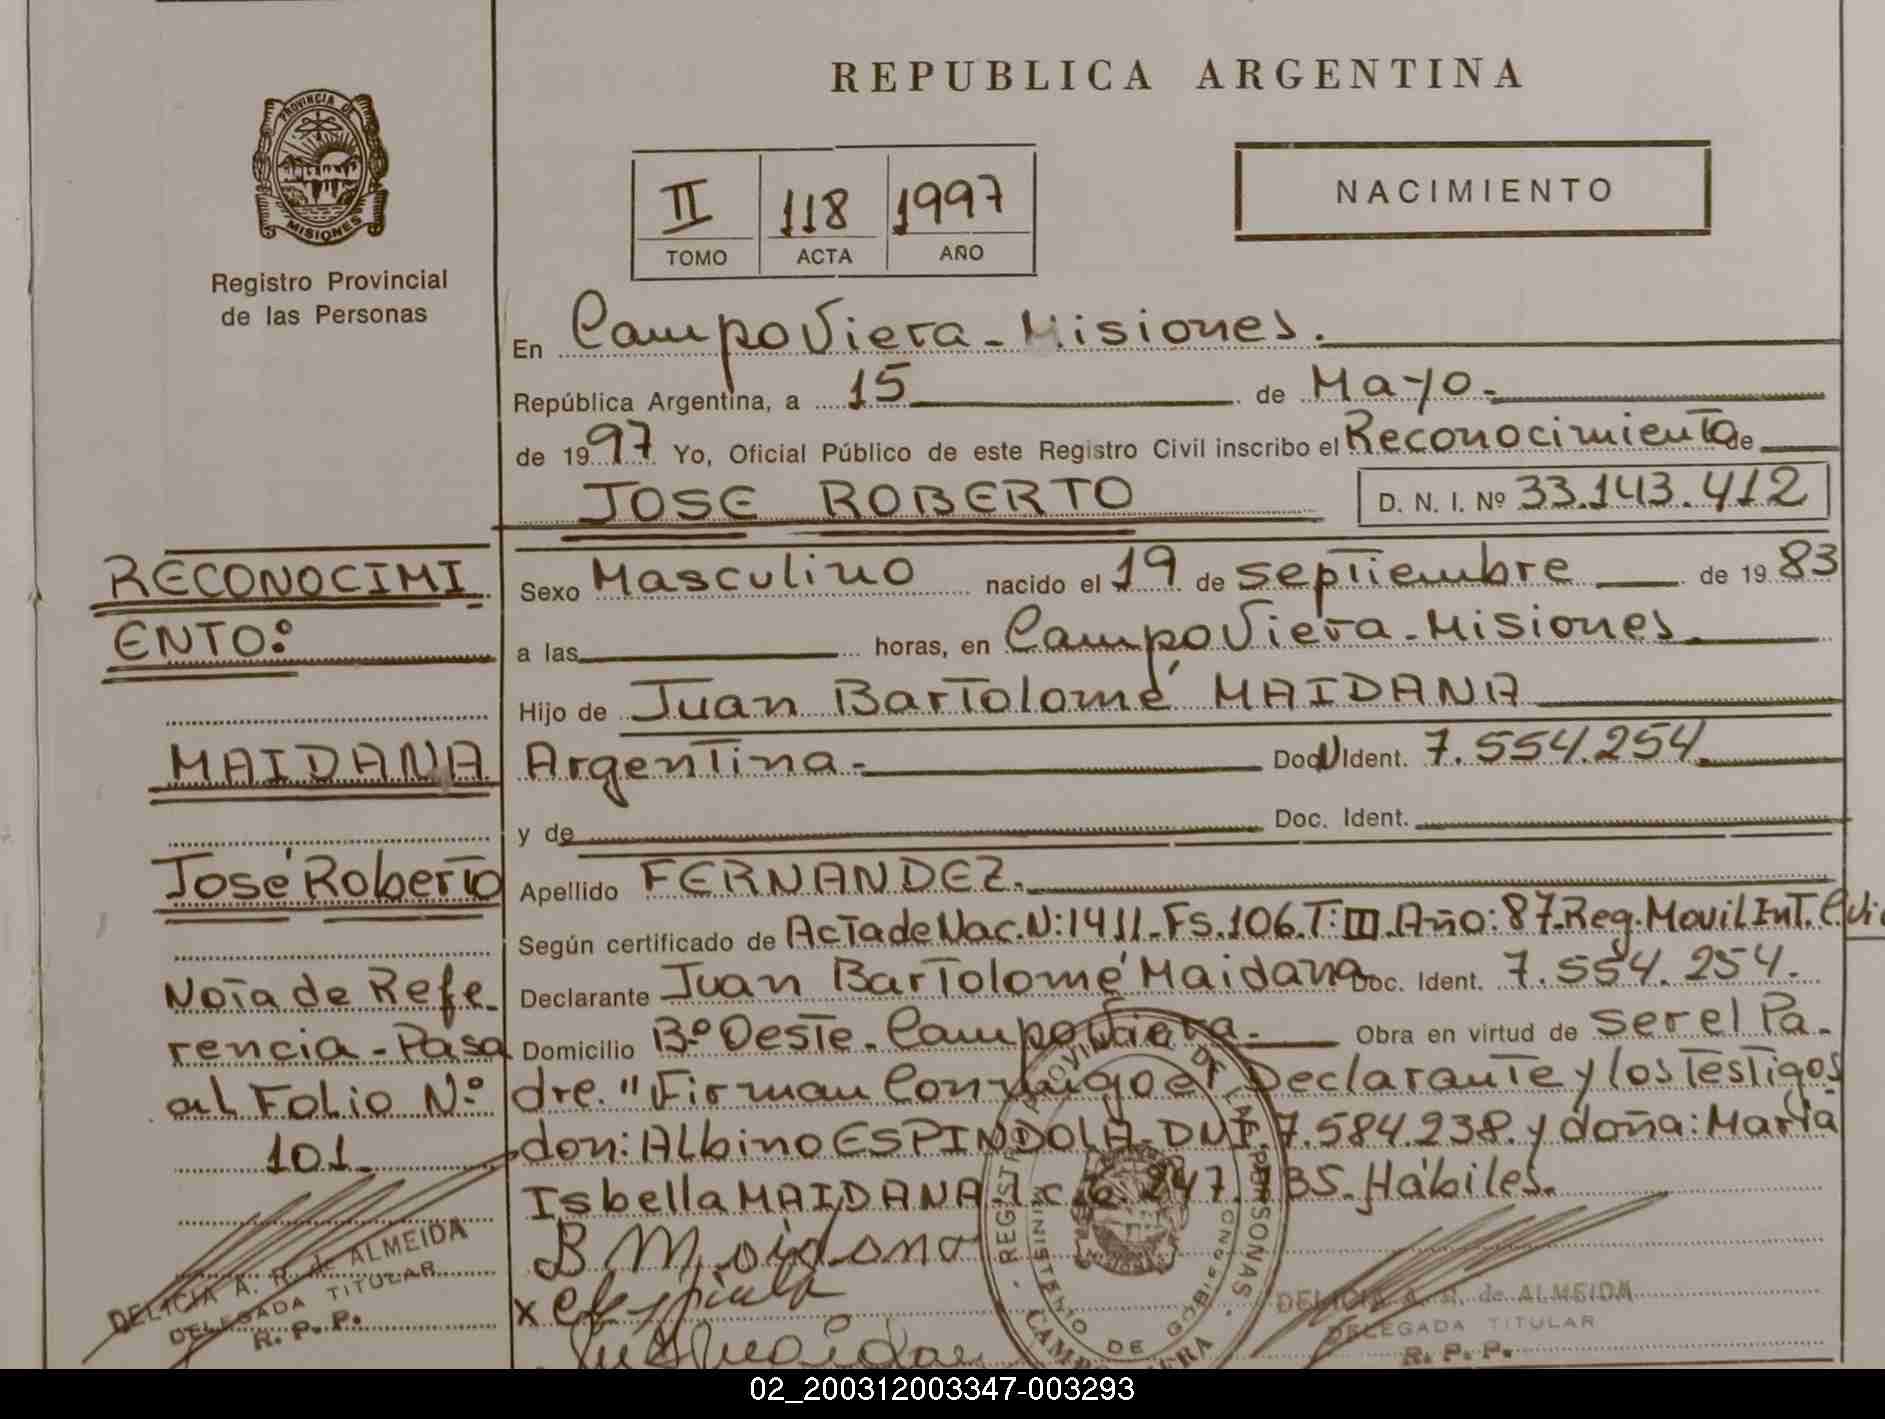 REPUBLICA ARGENTINA
PROVINCIA DE
MISIONES
Registro Provincial
de las Personas
II 118 1997
TOMO ACTA AÑO
NACIMIENTO
En Campo Viera - Misiones.
República Argentina, a 15 de Mayo.-
de 1997 Yo, Oficial Público de este Registro Civil inscribo el Reconocimiento de
JOSE ROBERTO D. N. I. Nº 33.143.412
RECONOCIMI
ENTO:
MAIDANA
José Roberto
Nota de Refe-
rencia - Pasa
al Folio N.º
101.-
Sexo Masculino nacido el 19 de septiembre de 1983
a las horas, en Campo Viera - Misiones.
Hijo de Juan Bartolomé MAIDANA
Argentina.- Doc N Ident. 7.554.254.
y de Doc. Ident.
Apellido FERNANDEZ.-
Según certificado de Acta de Nac. N: 1411 - Fs. 106. T: III. Año: 87. Reg. Movil Int.
Declarante Juan Bartolomé Maidana Doc. Ident. 7.554.254.
Domicilio Bº Oeste - Campo Viera.- Obra en virtud de ser el Pa-
dre." Firman Conmigo el Declarante y los Testigos
don: Albino ESPINDOLA - DNI. 7.584.238. y doña: Maria
Isbella MAIDANA 247.135. Hábiles.
B Maidana
x
DELICIA A. R. de ALMEIDA
DELEGADA TITULAR
R. P. P.
REGISTRO PROVINCIAL DE LAS PERSONAS
MINISTERIO DE GOBIERNO
CAMPO VIERA
DELICIA A. R. de ALMEIDA
DELEGADA TITULAR
R. P. P.
02_200312003347-003293